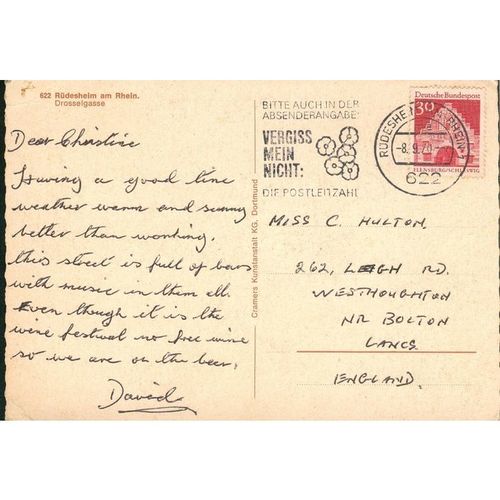 622 Rüdesheim am Rhein.
Drosselgasse
Dear Christine
Having a good time
weather warm and sunny
better than working,
this street is full of bars
with music in them all.
Even though it is the
wine festival no free wine
so we are on the beer.
David
Cramers Kunstanstalt KG. Dortmund
BITTE AUCH IN DER
ABSENDERANGABE:
VERGISS
MEIN
NICHT:
DIE POSTLEITZAHL
Deutsche Bundespost
30
FLENSBURG/SCHLESWIG
RÜDESHEIM
(RHEIN)
-8.9.
622
MISS C. HULTON.
262, LEIGH RD.
WESTHOUGHTON
NR BOLTON
LANCS
ENGLAND.